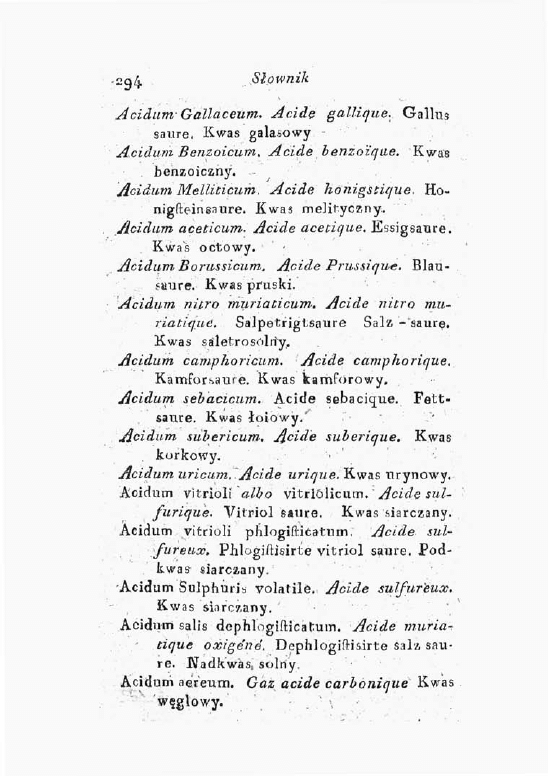 294 Słownik
Acidum Gallaceum. Acide gallique. Gallus
saure. Kwas galasowy
Acidum Benzoicum. Acide benzoïque. Kwas
benzoiczny.
Acidum Melliticum. Acide honigstique. Ho-
nigſteinsaure. Kwas melityczny.
Acidum aceticum. Acide acetique. Essigsaure.
Kwas octowy.
Acidum Borussicum. Acide Prussique. Blau-
saure. Kwas pruski.
Acidum nitro muriaticum. Acide nitro mu-
riatique. Salpetrigtsaure Salz - saure.
Kwas saletrosolny.
Acidum camphoricum. Acide camphorique.
Kamforsaure. Kwas kamforowy.
Acidum sebacicum. Acide sebacique. Fett-
saure. Kwas łoiowy.
Acidum subericum. Acide suberique. Kwas
korkowy.
Acidum uricum. Acide urique. Kwas urynowy.
Acidum vitrioli albo vitriolicum. Acide sul-
furique. Vitriol saure. Kwas siarczany.
Acidum vitrioli phlogiſticatum. Acide sul-
fureux. Phlogiſtisirte vitriol saure. Pod-
kwas siarczany.
Acidum Sulphuris volatile. Acide sulfureux.
Kwas siarczany.
Acidum salis dephlogiſticatum. Acide muria-
tique oxigéné. Dephlogiſtisirte salz sau-
re. Nadkwas solny.
Acidum aereum. Gaz acide carbonique Kwas
węglowy.